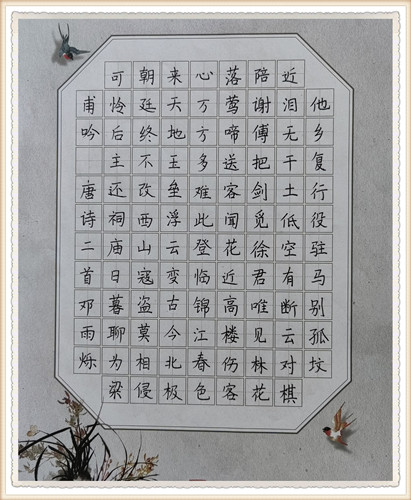 他乡复行役驻马别孤坟
近泪无干土低空有断云对棋
陪谢傅把剑觅徐君唯见林花
落莺啼送客闻花近高楼伤客
心万方多难此登临锦江春色
来天地玉垒浮云变古今北极
朝廷终不改西山寇盗莫相侵
可怜后主还祠庙日暮聊为梁
甫吟 唐诗二首邓雨烁